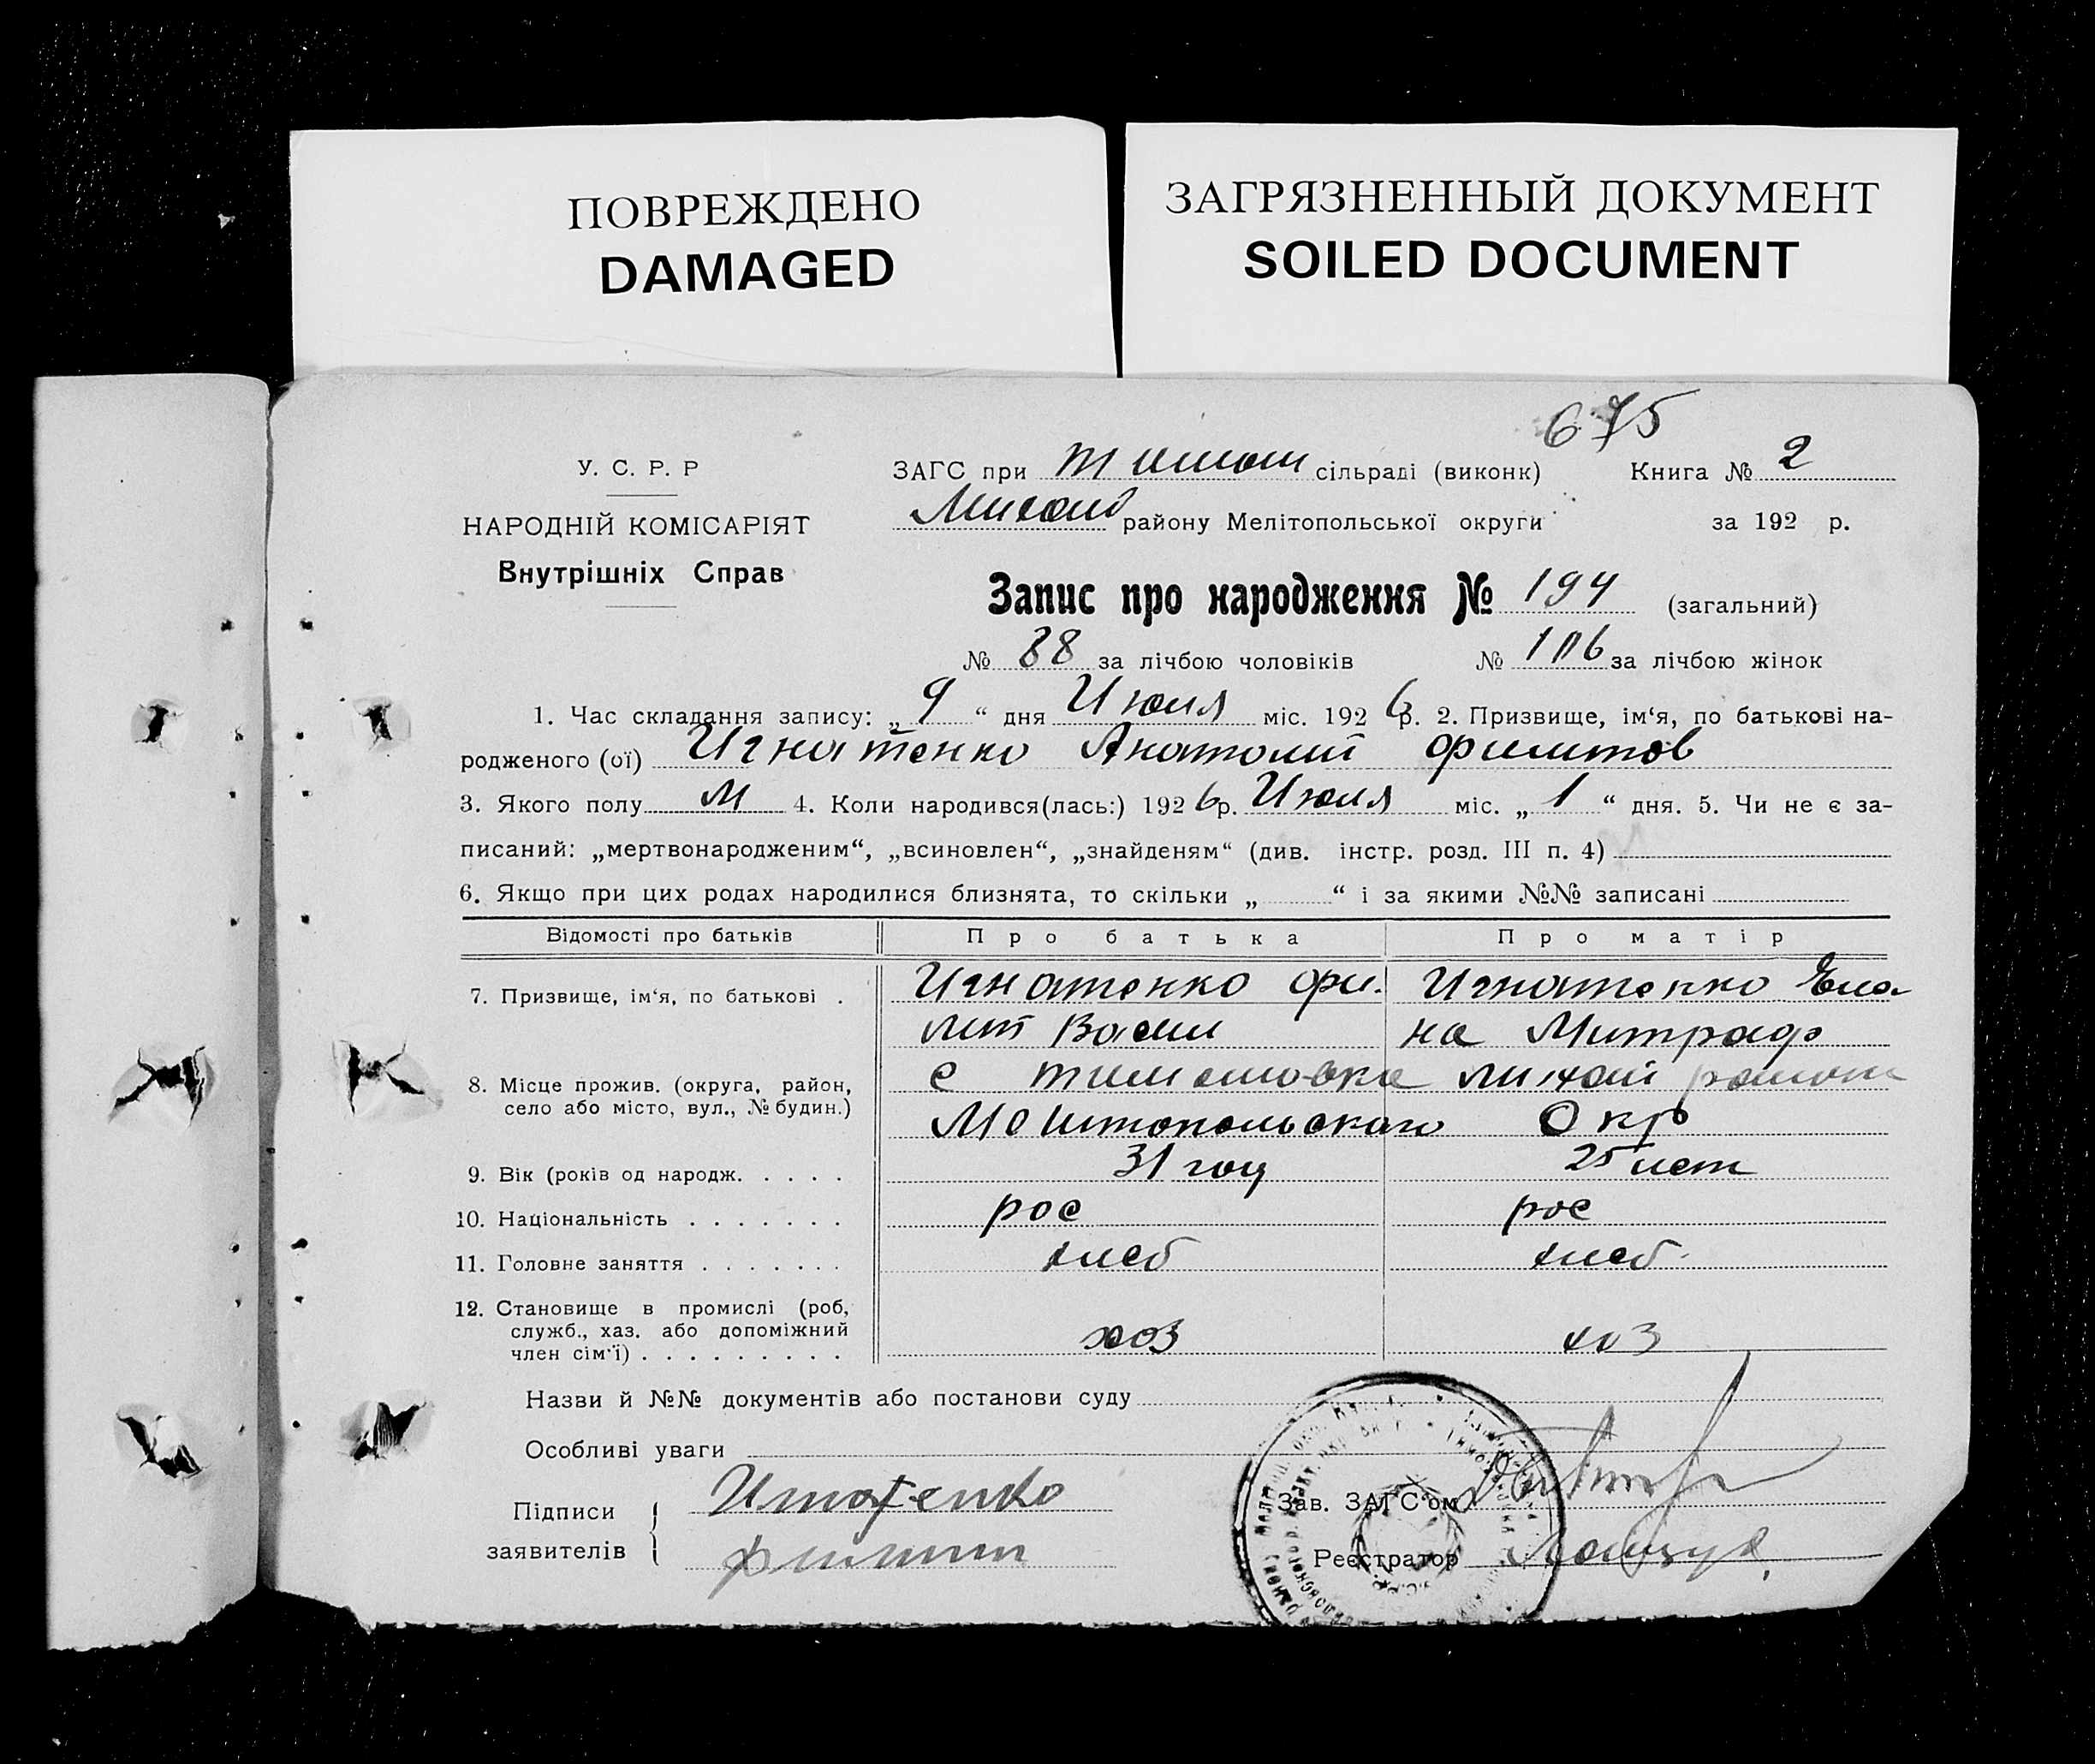 ПОВРЕЖДЕНО
DAMAGED
ЗАГРЯЗНЕННЫЙ ДОКУМЕНТ
SOILED DOCUMENT
675
У. С. Р. Р
НАРОДНІЙ КОМІСАРІЯТ
Внутрішніх Справ
ЗАГС при Тимош сільраді (виконк) Книга № 2
району Мелітопольської округи за 192 р.
Запис про народження № 194 (загальний)
№ 88 за лічбою чоловіків № 106 за лічбою жінок
1. Час складання запису: „ 9 “ дня Июля міс. 1926 р. 2. Призвище, ім‘я, по батькові на-
родженого (ої) Игнатенко Анатолий Филитов
3. Якого полу М 4. Коли народився(лась:) 1926 р. Июля міс. „ 1 “ дня. 5. Чи не є за-
писаний: „мертвонародженим“, „всиновлен“, „знайденям“ (див. інстр. розд. III п. 4)
6. Якщо при цих родах народилися близнята, то скільки „ “ і за якими №№ записані
Відомості про батьків Про батька Про матір
7. Призвище, ім‘я, по батькові . Игнатенко Фи- Игнатенко Еле
лит Васил на Митроф
8. Місце прожив. (округа, район, с Тимошовка Михай район
село або місто, вул., № будин.) Мелитопольскаго Окр
9. Вік (років од народж. . . . . 31 год 25 лет
10. Національність . . . . . . . рос рос
11. Головне заняття . . . . . . . хлеб хлеб
12. Становище в промислі (роб,
служб., хаз. або допоміжний
член сім‘ї) . . . . . . . . . хоз хоз
Назви й №№ документів або постанови суду
Особливі уваги
Підписи Игнатенко Зав. ЗАГС‘ом
заявителів Филипп Реєстратор